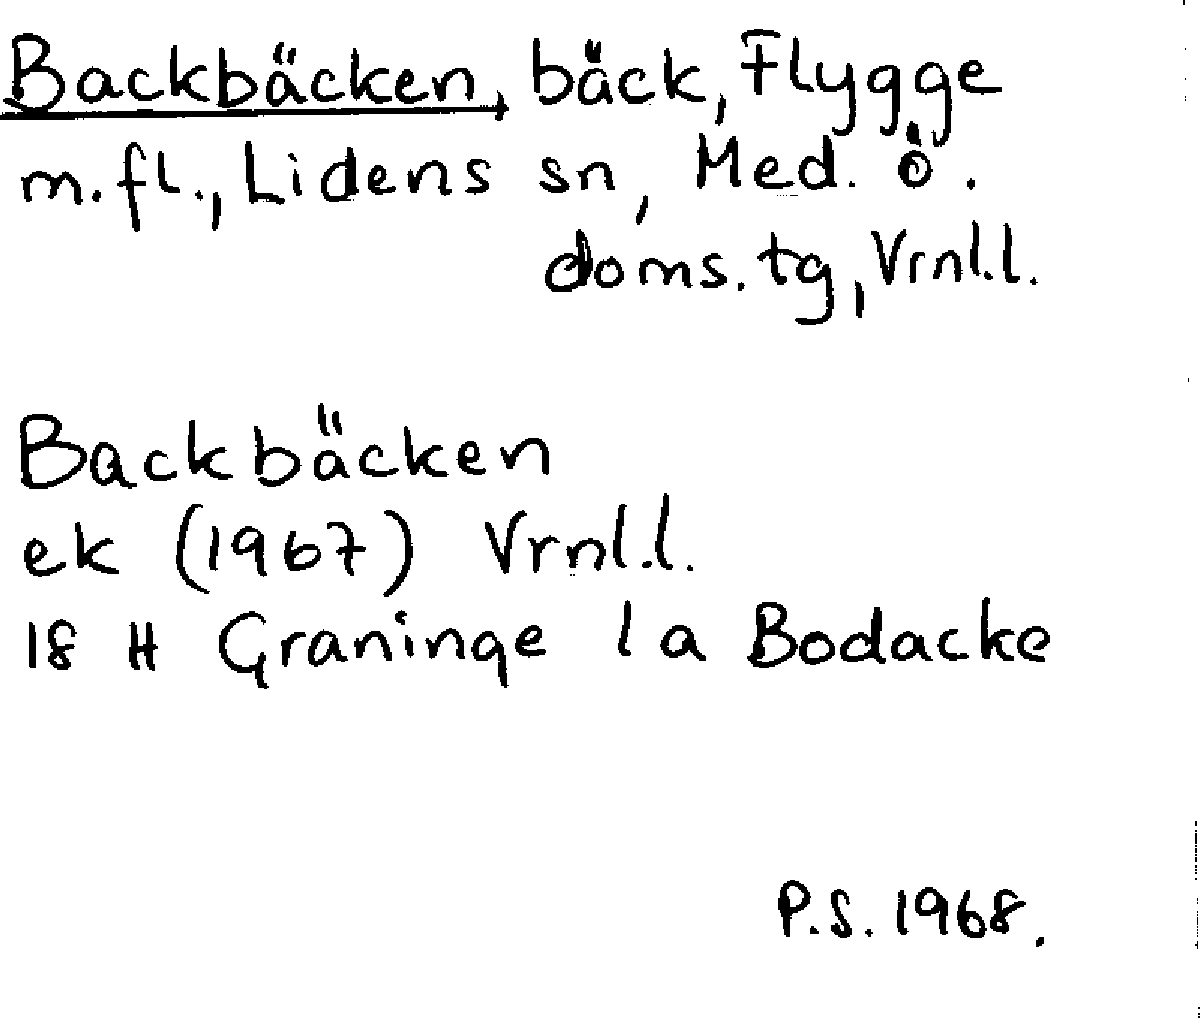 Backbäcken, bäck, Flygge
m.fl., Lidens sn, Med. ö.
doms.tg, Vrnl.l.
Backbäcken
ek (1967) Vrnl.l.
18 H Graninge 1 a Bodacke
P.S. 1968.